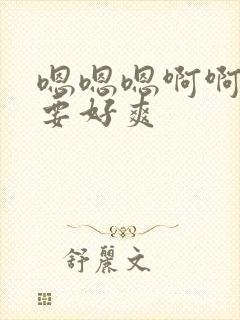 嗯嗯嗯啊啊
要好爽
舒麗文